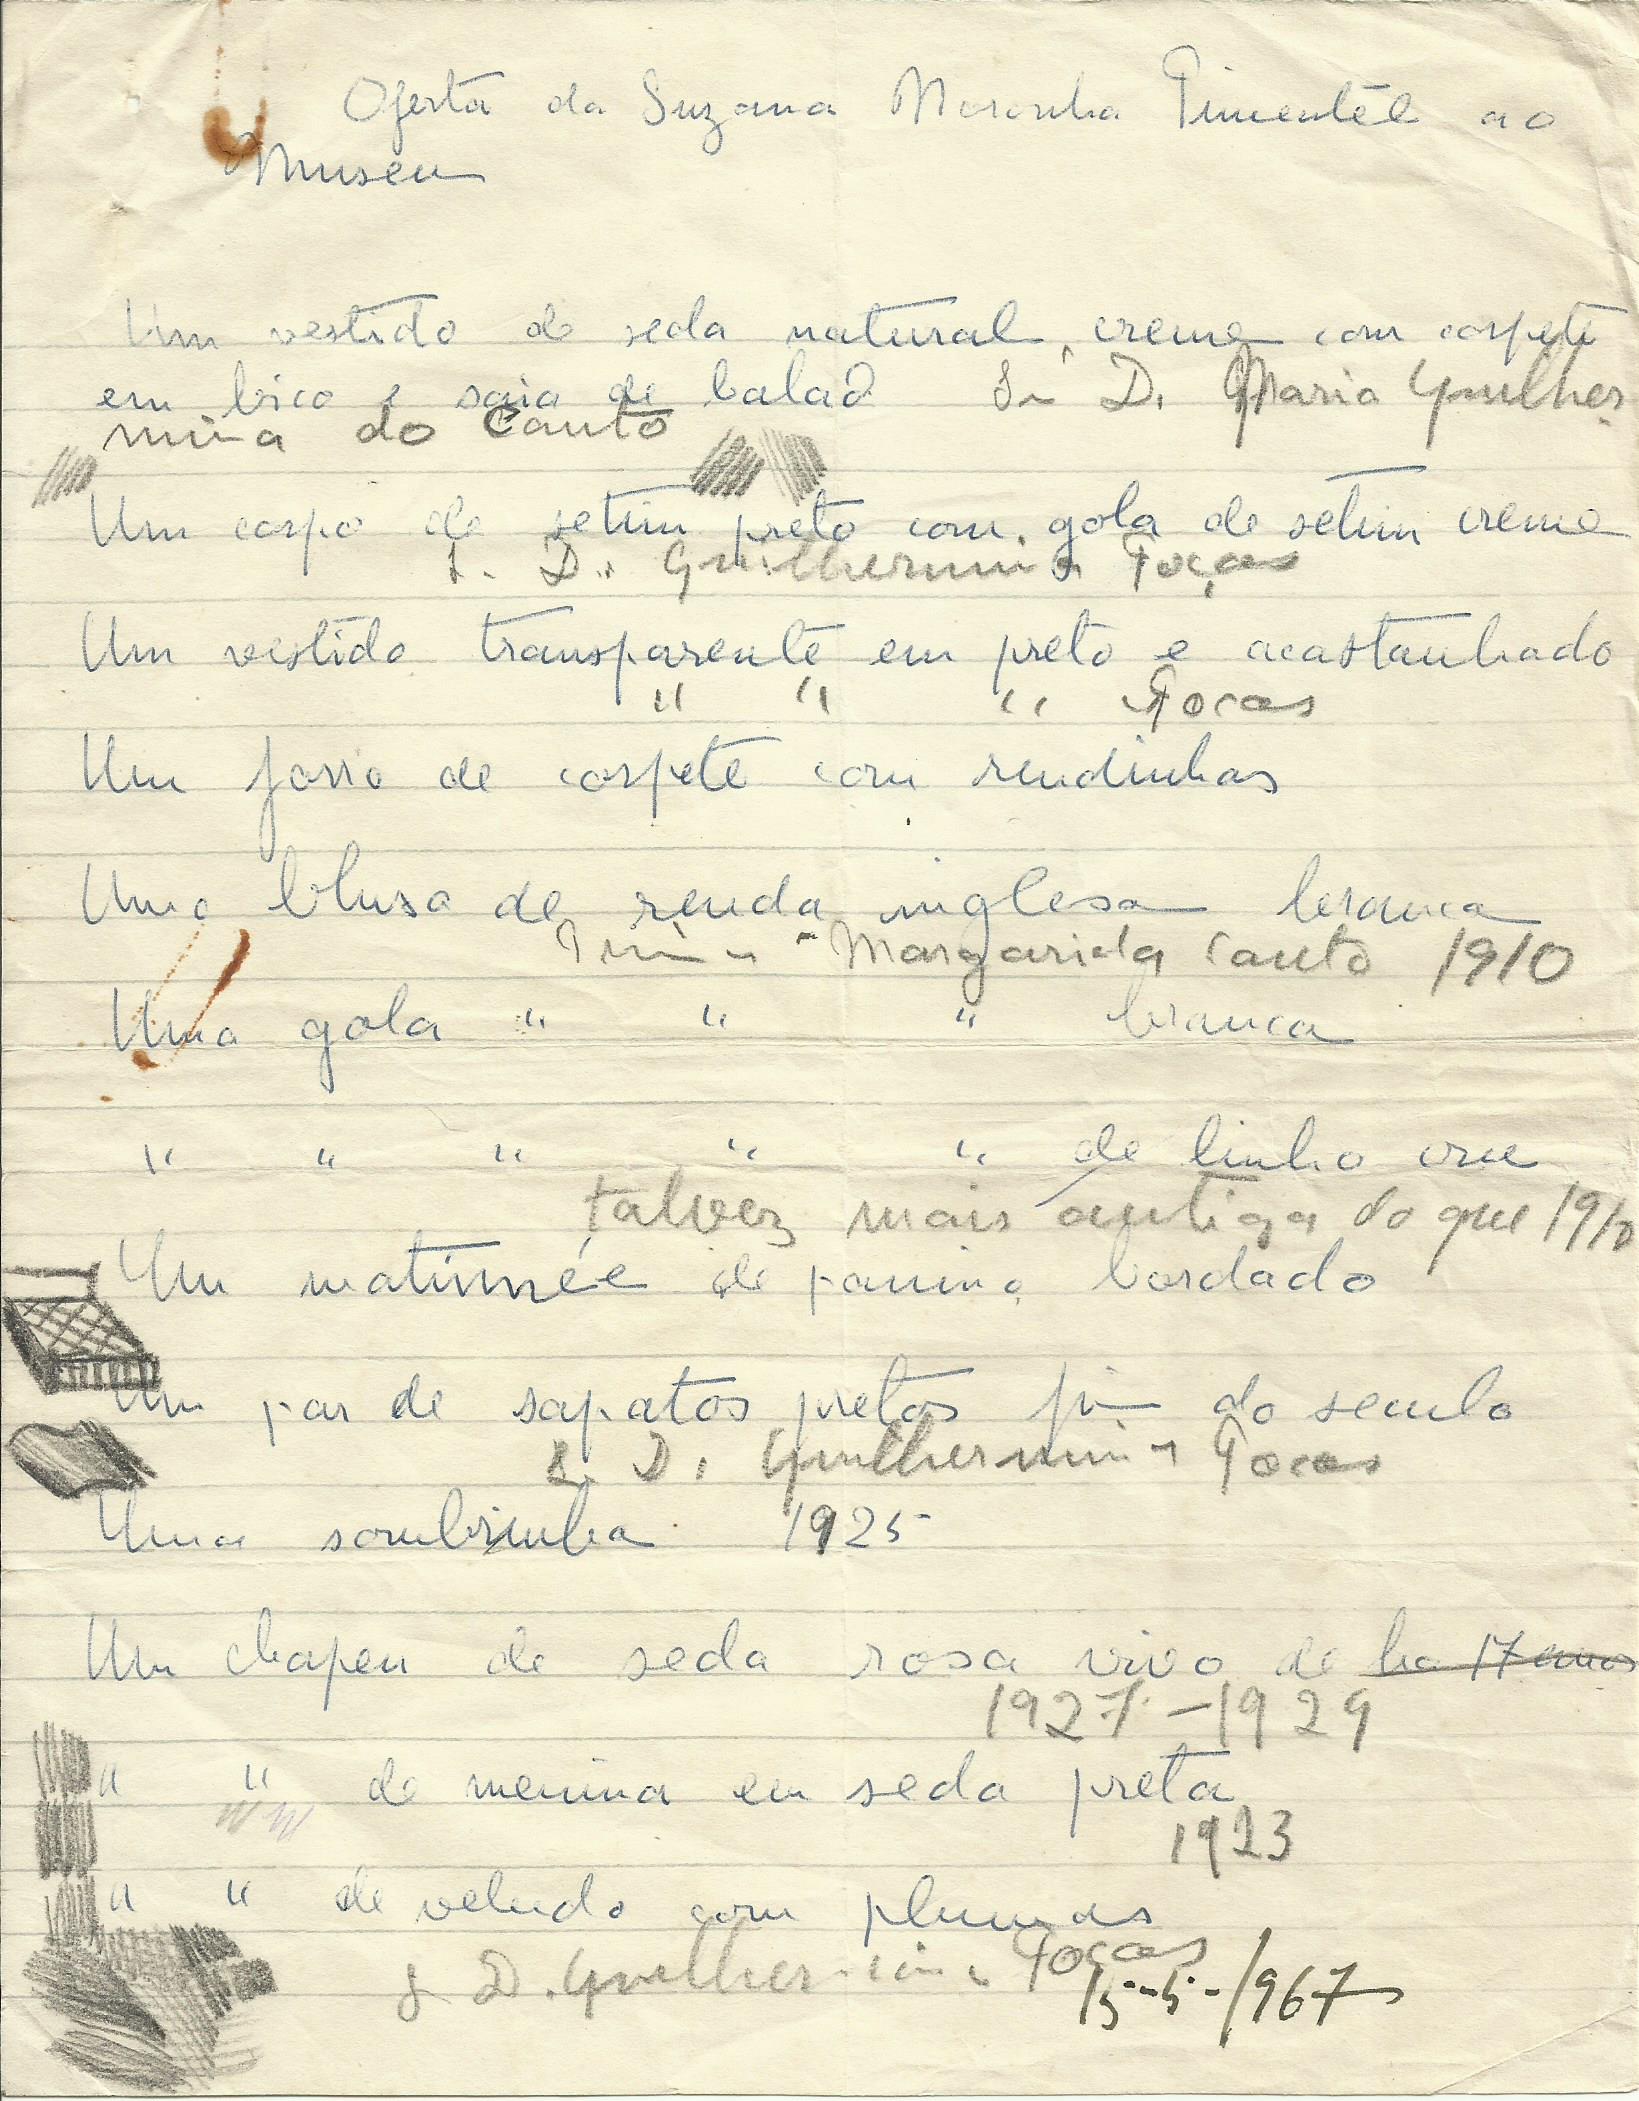 Oferta da Suzana Noronha Pimentél ao
Museu
Um vestido de seda natural creme com corpete
em bico e saia de balaõ Sr.ª D. Maria Guilher
mina do Canto
Um corpo de setim preto com gola de setim creme
S. D. Guilhermina Poças
Um vestido transparente em preto e acastanhado
" " " Poças
Um forro de corpete com rendinhas
Uma blusa de renda inglesa branca
Margarida Canto 1910
Uma gola " " " branca
" " " " " de linho crue
talvez mais antiga do que 1910
Um matinnée de panino bordado
Um par de sapatos pretos fim do seculo
S. D. Guilhermina Poças
Uma sombrinha 1925
Um chapeu de seda rosa vivo de ha 17 anos
1927-1929
" " de menina em seda preta
1923
" " de veludo com plumas
S. D. Guilhermina Poças
15-5-1967